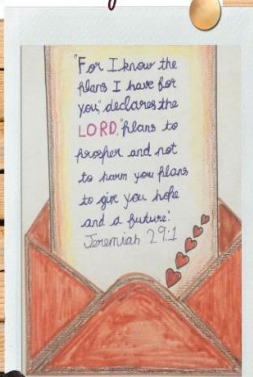 "For I know the
plans I have for
you," declares the
LORD, "plans to
prosper and not
to harm you plans
to give you hope
and a future."
Jeremiah 29:1